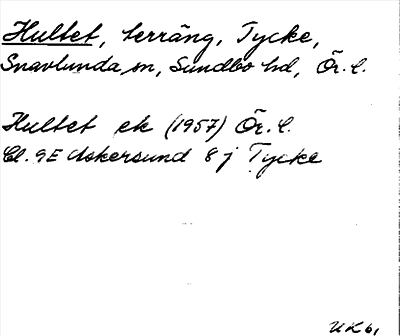 Hultet, terräng, Tycke,
Snavlunda sn, Sundbo hd, Ör. l.
Hultet ek (1957) Ör. l.
Bl. 9E Askersund 8 j Tycke
UK 61